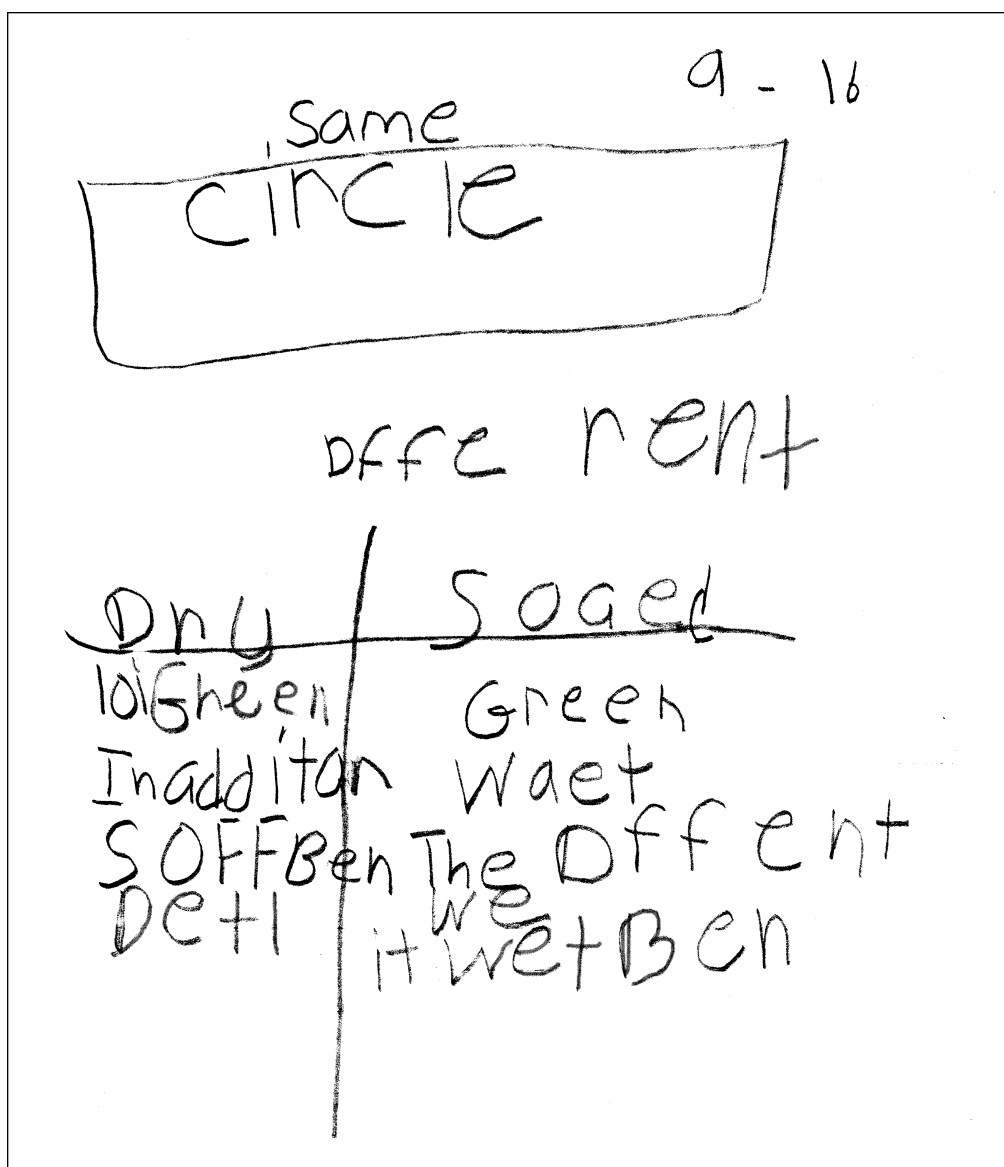 9 - 16
same
circle
Dffe rent
Dry Soaed
Green Green
Inadditon Waet
SOFFBen The Dffent
Detl We
it wetBen